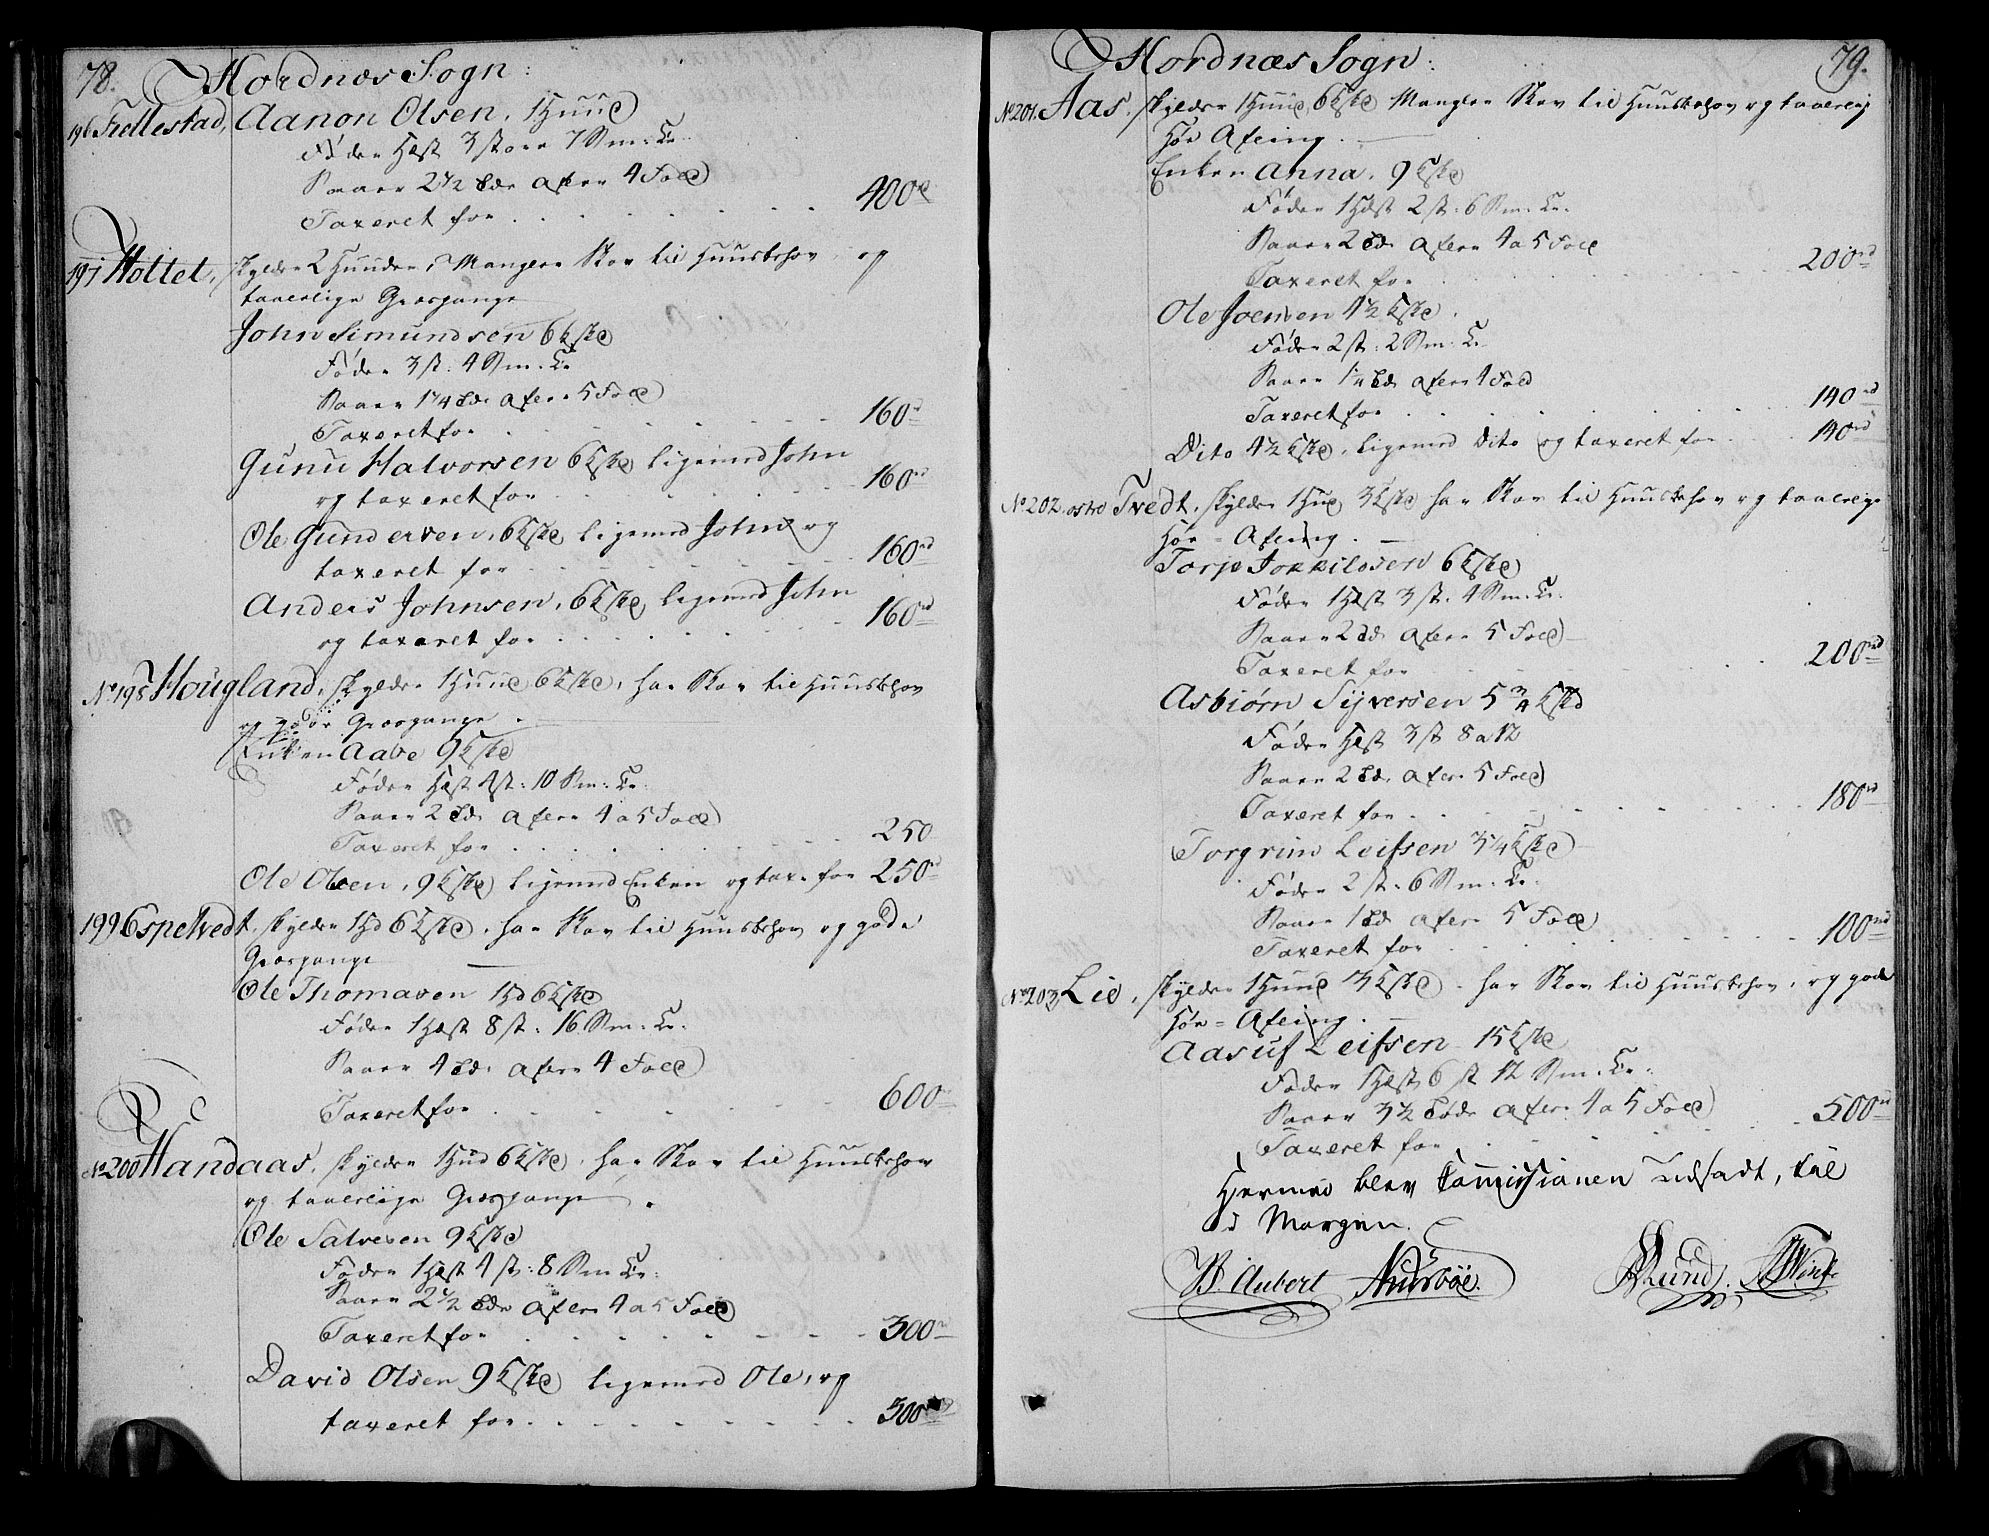 78.
Hordnæs Sogn:
196 Fiellestad, Aanon Olsen, 1 Huud
Føder Hest 3 store 7 Sm: Cr.
Saaer 2 1/2 Tdr afler 4 Fold
Taxeret for 400 rd
197 Holtet, skylder 2 Huuder, Mangler Skov til Huusbehov, og
taalelige Græsgange
John Simundsen 6 Kske
Føder 3 st: 4 Sm: Cr
Saaer 1 1/4 Tdr afler 5 Fold
Taxeret for 160 rd
Gunu Halvorsen 6 Kske, ligemed John
og taxeret for 160 rd
Ole Gundersen, 6 Kske, ligemed John og
taxeret for 160 rd
Anders Johnsen, 6 Kske, ligemed John
og taxeret for 160 rd
No 198 Hougland, skylder 1 Huud 6 Kske, har Skov til Huusbehov
og gode Græsgange.
Enken Aabe 9 Kske
Føder Hest 4 st: 10 Sm: Cr.
Saaer 2 Tdr afler 4 a 5 Fold
Taxeret for 250
Ole Olsen, 9 Kske ligemed Enken og tax: for 250 rd
199 Espetvedt, skylder 1 Hd 6 Kske, har Skov til Huusbehov og gode
Græsgange
Ole Thomasen 1 Hd 6 Kske
Føder 1 Hest 8 st: 16 Sm: Cr.
Saaer 4 Tdr afler 4 Fold
Taxeret for 600
No 200 Handaas, skylder 1 Hud 6 Kske, har Skov til Huusbehov
og taalelige Græsgange.
Ole Salvesen 9 Kske
Føder 1 Hest 4 st: 8 Sm Cr:
Saaer 2 1/2 Tdr afler 4 a 5 Fold
Taxeret for 300 rd
David Olsen 9 Kske ligemed Ole, og
taxeret for 300
79.
Hordnæs Sogn:
No 201. Aas, skylder 1 Huud, 6 Kske Mangler Skov til Huusbehov og taalelig
Høe Afling.
Enken Anna, 9 Kske
Føder 1 Hest 2 st: 6 Sm: Cr.
Saaer 2 Tdr afler 4 a 5 Fold
Taxeret for 200 rd
Ole Joensen 4 1/2 Kske.
Føder 2 st: 2 Sm: Cr
Saaer 1 1/4 Tdr afler 4 Fold
Taxeret for 140 rd
Dito 4 1/2 Kske, ligemed Dito og taxeret for 140 rd
No 202. østre Tvedt, skylder 1 Hud 3 Kske har Skov til Huusbehov og taalelige
Høe-Afling.
Torje Jokkilssen 6 Kske
Føder 1 Hest 3 st: 4 Sm: Cr.
Saaer 2 Tdr afler 5 Fold
Taxeret for 200 rd
Asbiørn Syversen 5 3/4 Kske
Føder Hest 3 st 8 a 12
Saaer 2 Tdr afler 5 Fold
Taxeret for 180 rd
Torgrim Leifsen 3 1/4 Kske
Føder 2 st: 6 Sm: Cr.
Saaer 1 Td afler 5 Fold
Taxeret for 100 rd
No 203 Lie, skylder 1 Huud 3 Kske, har Skov til Huusbehov, og gode
Høe-Afling.
Aasuf Leifsen 15 Kske
Føder 1 Hest 6 st 12 Sm: Cr.
Saaer 3 1/2 Tdr afler 4 a 5 Fold
Taxeret for 500 rd
Hermed blev Commissionen udsadt, til
i Morgen.
B. Aubert Auesbøe. Lund. Winde